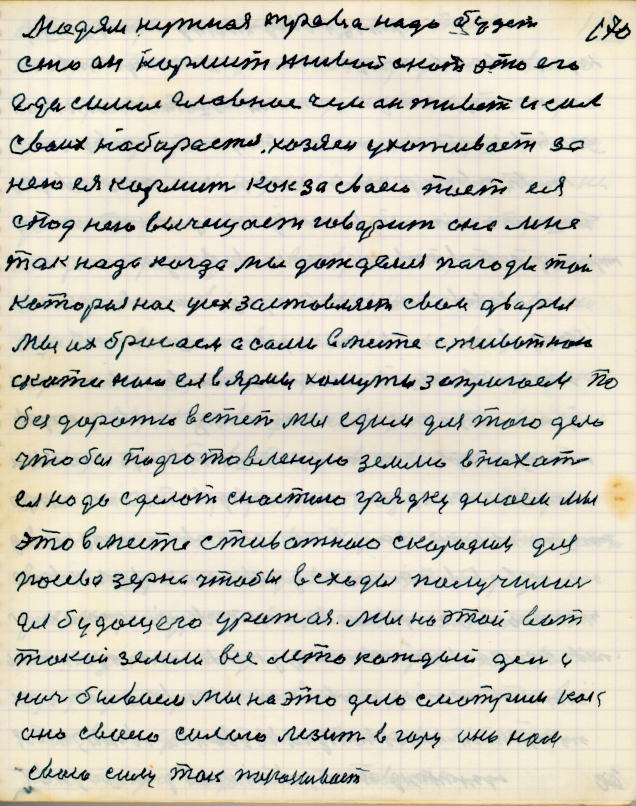 людям нужная трава надо будет 170
сто ан кормит живой скот это его
еда самое главное чем ан живет и сил
своих набараетя. хозяен ухоживает за
нею ея кормит как за своею поет ея
спод нею вычещает говарит оно мне
так надо когда мы дождёмя пагоды той
которыя нас усех заставляет свои двары
мы их бросаем а сами вместе с животнаю
скотинаю ея в ярмы хомуты запрягаем по
без дарожю в степ мы едим для того дела
чтобы подготовленую землю впахат
ея надо сделат снастило грядку делаем мы
это вместе стивотнаю скародим для
посева зерна чтобы всходы получилис
для будощего уражая. мы на этой вот
такой земли все лето каждый ден и
ноч бываем мы на это дело смотрим как
оно своею силаю лезит в гару оно нам
свою силу так паказывает